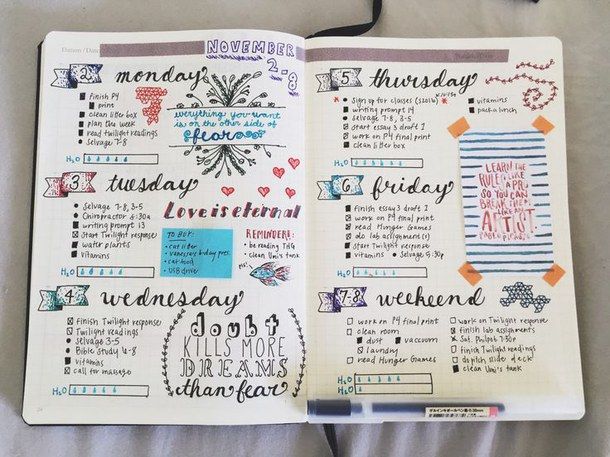 Datum / Date:
NOVEMBER
2-8
2
monday
finish P4
print
clean litter box
plan the week
read twilight readings
selvage 7-8
H₂O
everything you want
is on the other side of
fear
3
tuesday
Selvage 7-8, 3-5
Chiropractor 6:30a
writing prompt 13
Start Twilight response
water plants
vitamins
H₂O
Love is eternal
TO BUY:
• cat litter
• vanessa's b-day pres.
• cat food
• USB drive
REMINDERS:
• be reading THG
• clean Uni's tank
4
wednesday
finish Twilight response
Twilight readings
selvage 3-5
Bible Study 6-8
vitamins
call for massage
H₂O
doubt
KILLS MORE
DREAMS
than fear
5
thursday
* • Sign up for classes (S2016) *
writing prompt 14
selvage 7-8, 3-5
start essay 3 draft 1
work on P4 final print
clean litter box
vitamins
pack a lunch
H₂O
LEARN THE
RULES LIKE
A PRO,
SO YOU CAN
BREAK THEM
LIKE AN
ARTIST.
PABLO PICASSO
6
friday
finish essay 3 draft 1
work on P4 final print
read Hunger Games
do lab assignment(s)
start Twilight response
vitamins • Selvage 5:30p
H₂O
7-8
weekend
work on P4 final print
clean room
dust
vacuum
laundry
read Hunger Games
work on Twilight response
finish lab assignments
Sat. Philpot 7:30p
finish Twilight readings
do pitch slide deck
clean Uni's tank
H₂O
H₂O
ゲルインキボールペン 黒・0.38mm